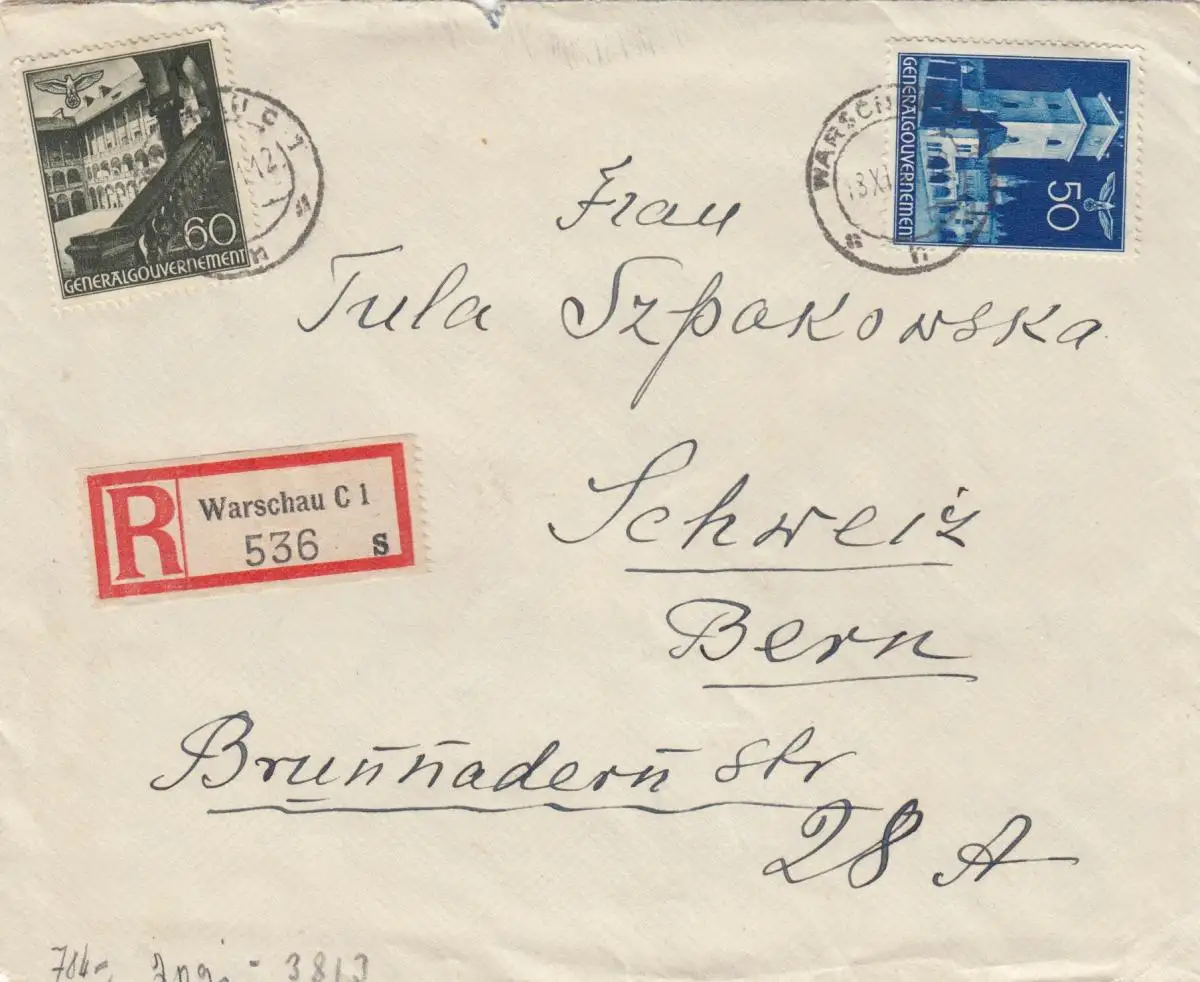 60
GENERALGOUVERNEMENT
50
GENERALGOUVERNEMENT
Frau
Tula Szpakowska
R
Warschau C 1
536 s
Schweiz
Bern
Brunnadern str
28 A
3813